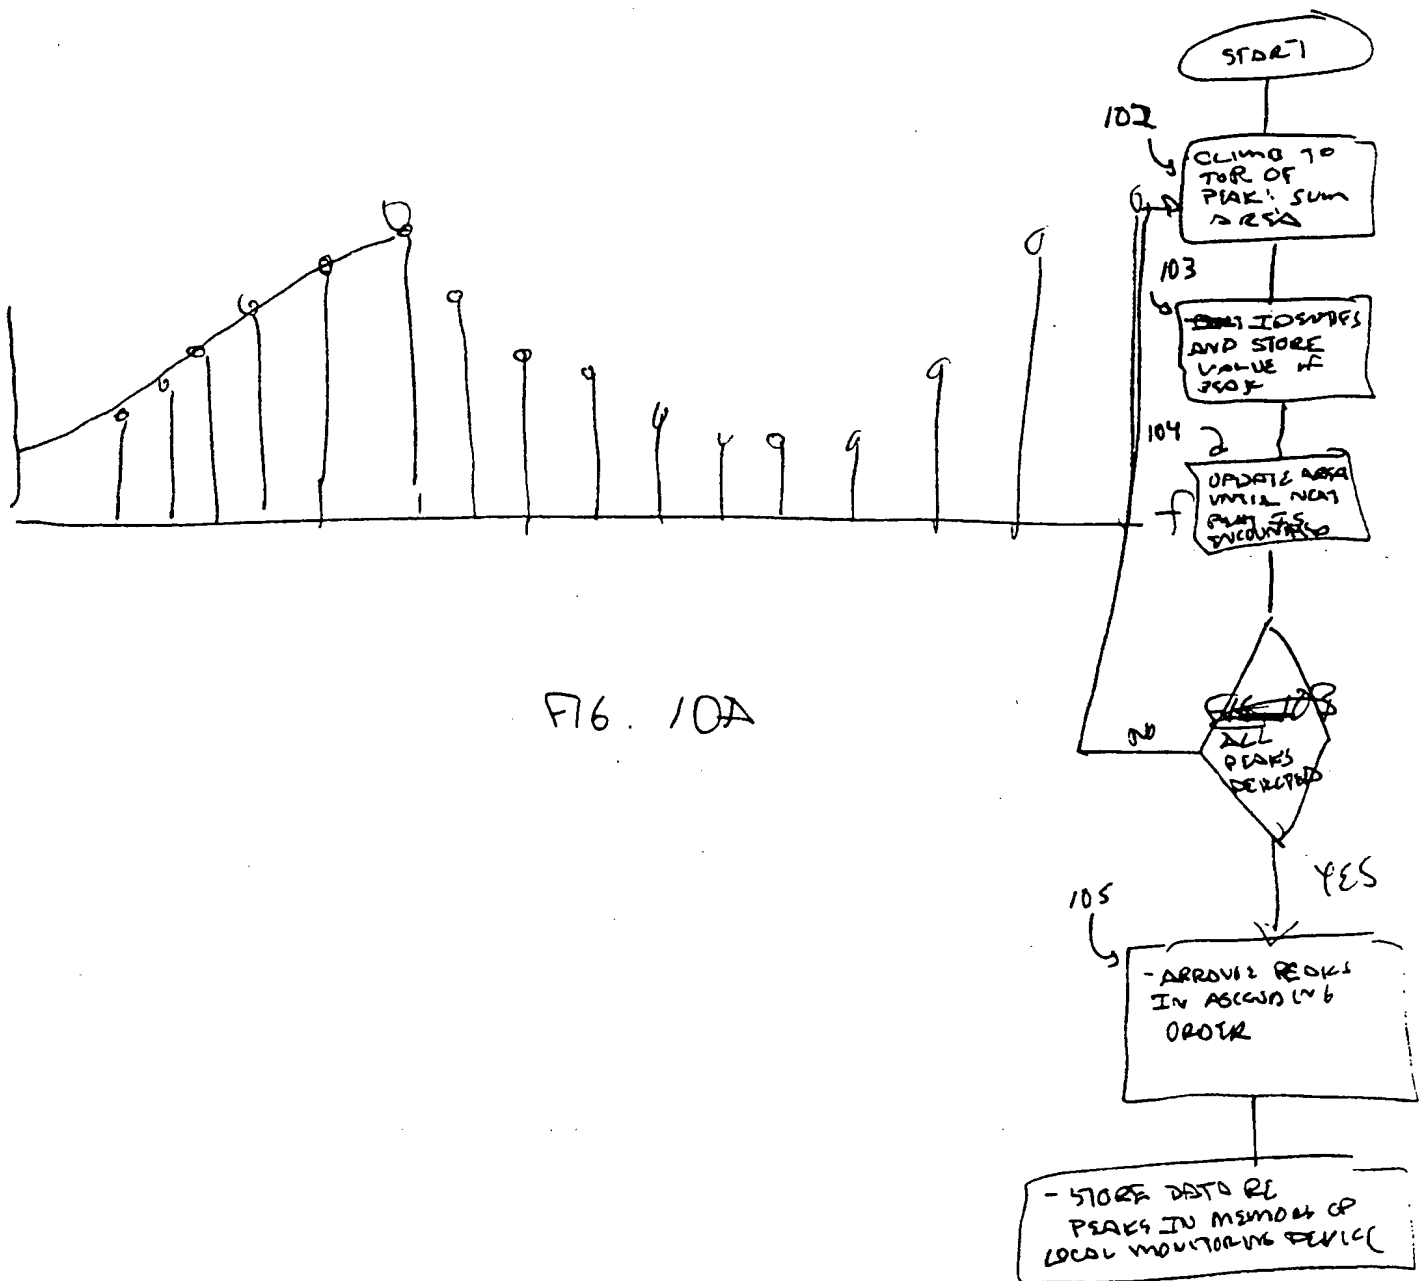 START
102
CLIMB TO
TOP OF
PEAK: SUM
AREA
103
IDENTIFS
AND STORE
VALUE OF
PEAK
104
UPDATE AREA
UNTIL NEXT
PEAK IS
ENCOUNTERED
ALL
PEAKS
DETECTED
NO
YES
FIG. 10A
105
- ARRANGE PEAKS
IN ASCENDING
ORDER
- STORE DATA RE
PEAKS IN MEMORY OF
LOCAL MONITORING DEVICE